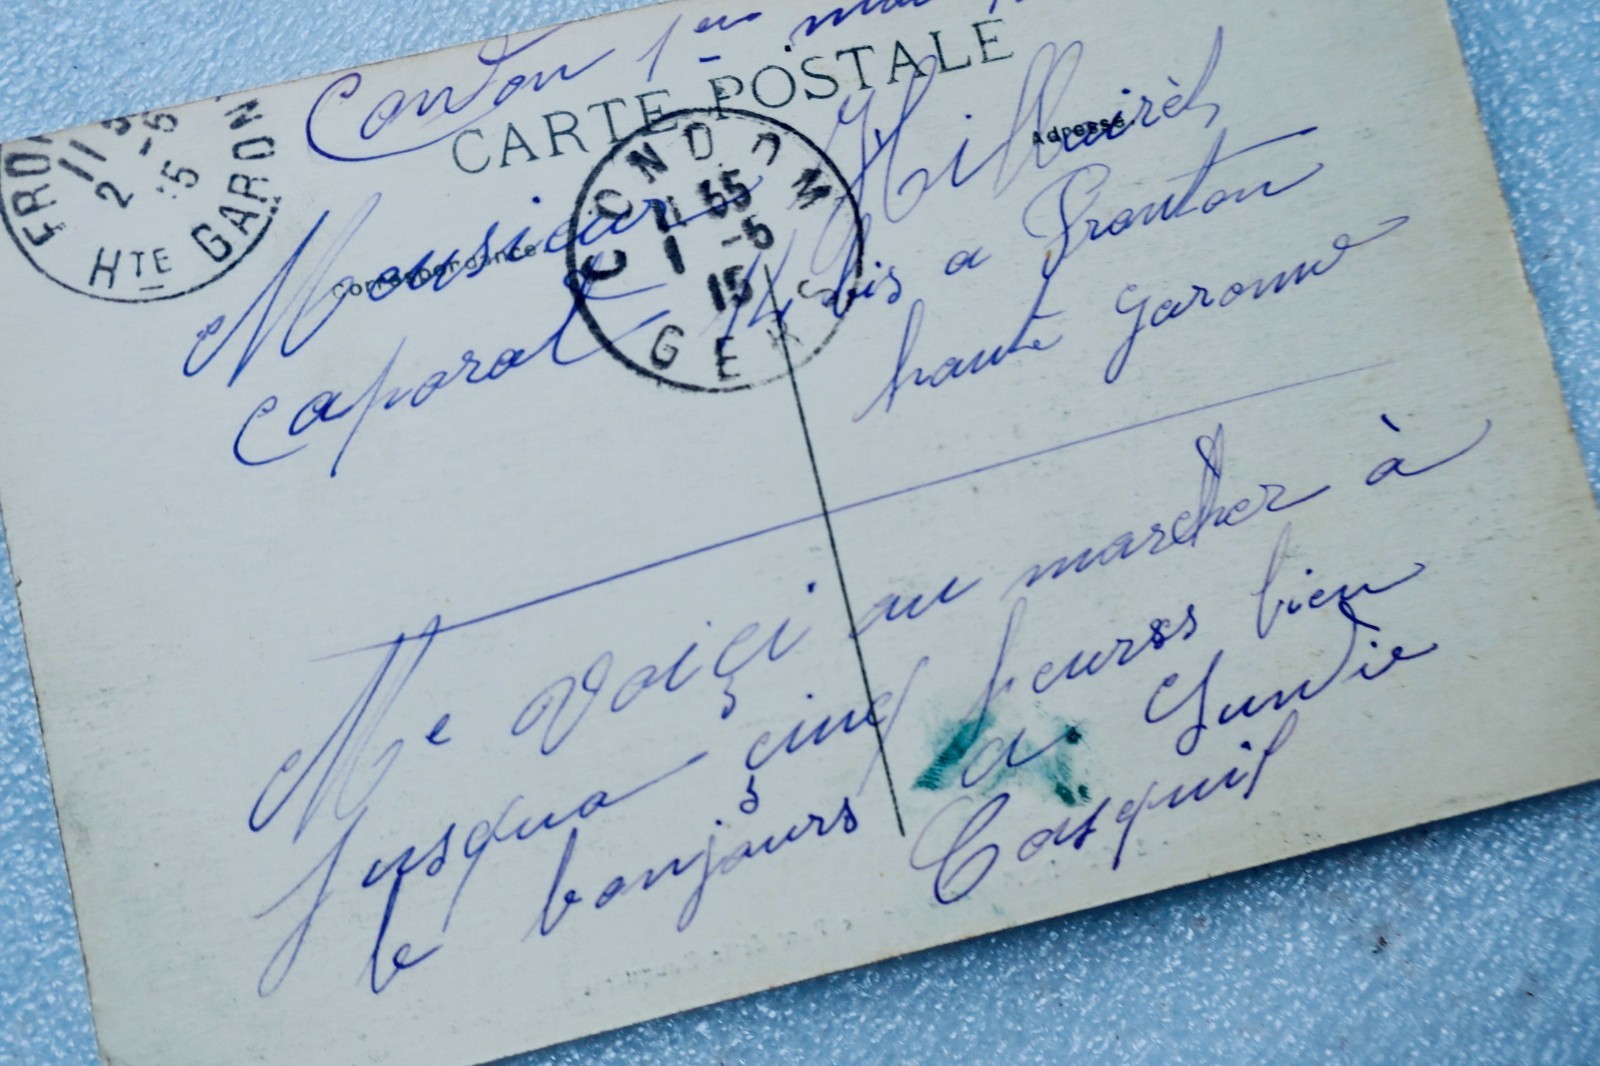 Condon 1er mai
CARTE POSTALE
FRO
11 3
2 -5
15
HTE GARON
CONDOM
11 55
1 -5
15
GERS
Correspondance
Adresse
Monsieur Hillairet
caporal 14 bis a Fronton
haute garonne
Me voiçi au marcher à
Jusqua çinq heures bien
le bonjours a
Casquil